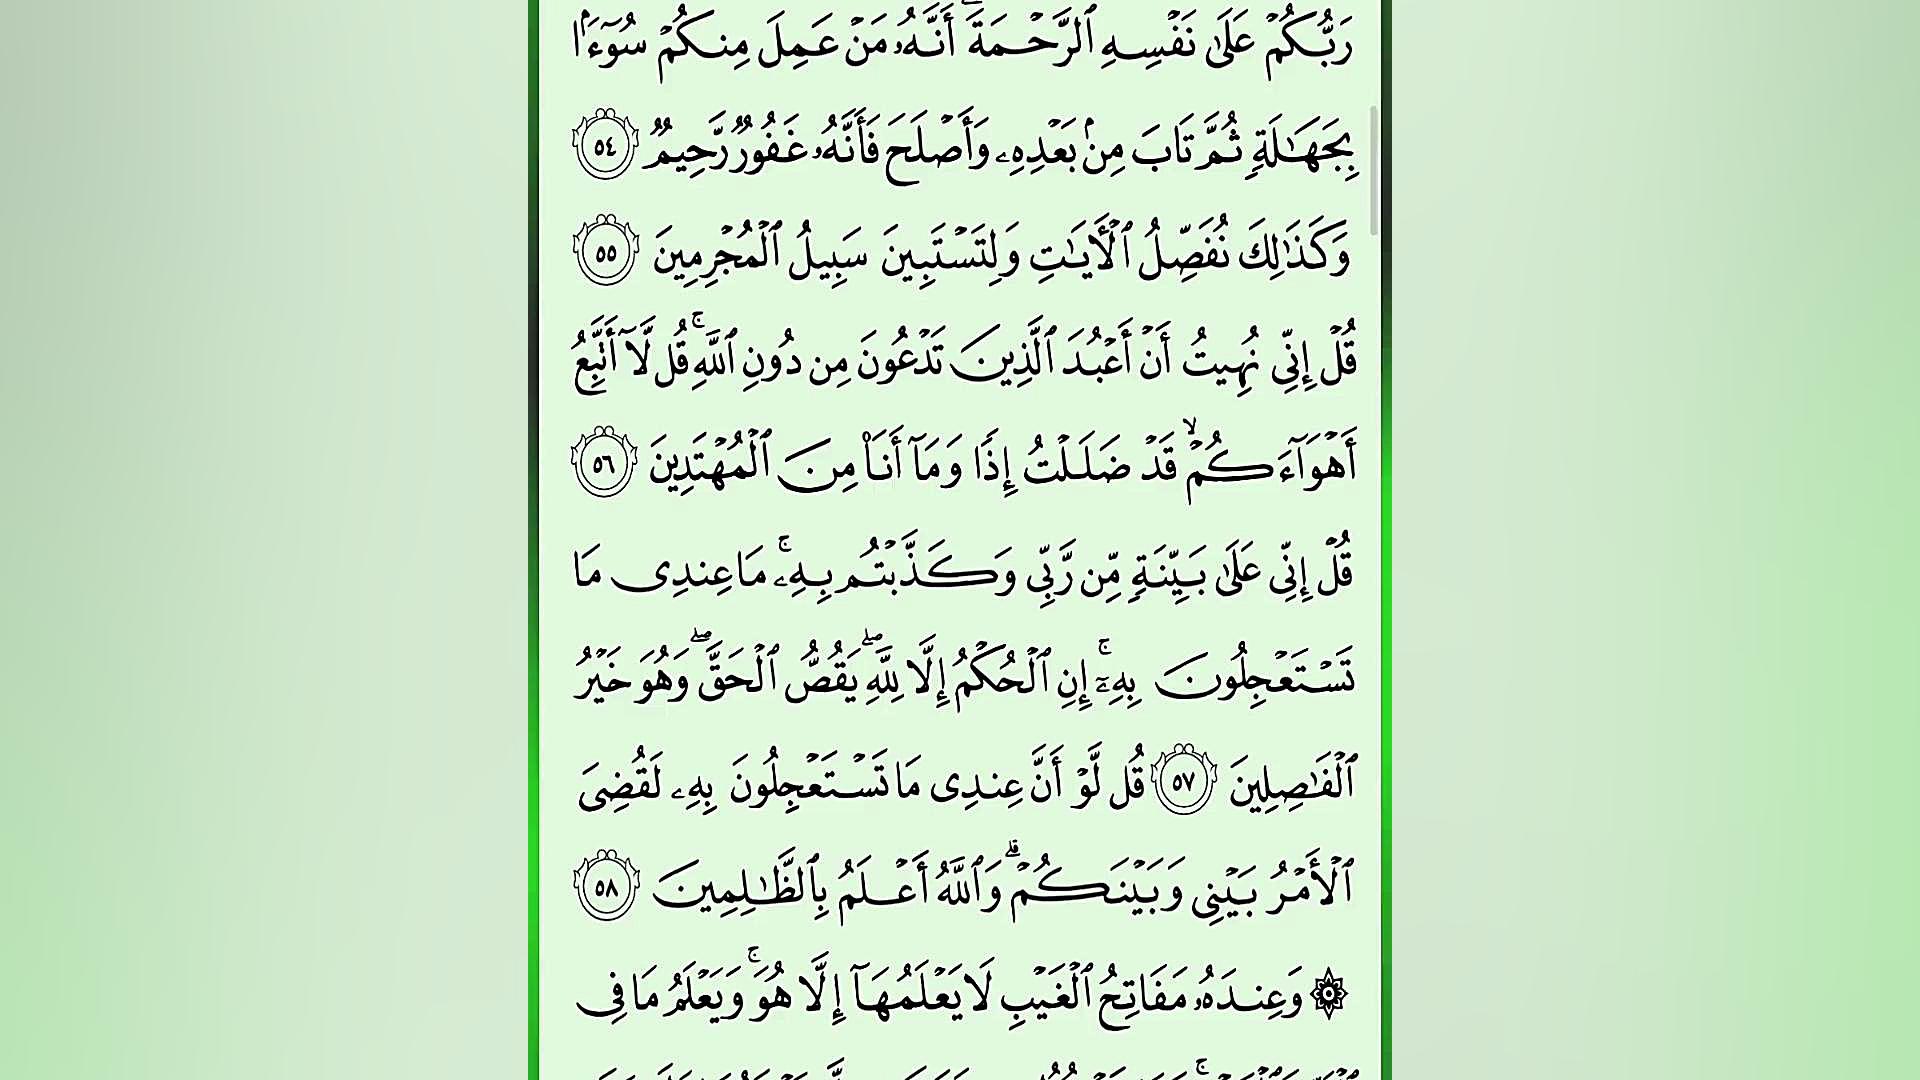 رَبُّكُمْ عَلَىٰ نَفْسِهِ ٱلرَّحْمَةَ ۖ أَنَّهُۥ مَنْ عَمِلَ مِنكُمْ سُوٓءًۢا
بِجَهَـٰلَةٍ ثُمَّ تَابَ مِنۢ بَعْدِهِۦ وَأَصْلَحَ فَأَنَّهُۥ غَفُورٌ رَّحِيمٌ ٥٤
وَكَذَٰلِكَ نُفَصِّلُ ٱلْـَٔايَـٰتِ وَلِتَسْتَبِينَ سَبِيلُ ٱلْمُجْرِمِينَ ٥٥
قُلْ إِنِّى نُهِيتُ أَنْ أَعْبُدَ ٱلَّذِينَ تَدْعُونَ مِن دُونِ ٱللَّهِ ۚ قُل لَّآ أَتَّبِعُ
أَهْوَآءَكُمْ ۙ قَدْ ضَلَلْتُ إِذًا وَمَآ أَنَا۠ مِنَ ٱلْمُهْتَدِينَ ٥٦
قُلْ إِنِّى عَلَىٰ بَيِّنَةٍ مِّن رَّبِّى وَكَذَّبْتُم بِهِۦ ۚ مَا عِندِى مَا
تَسْتَعْجِلُونَ بِهِۦٓ ۚ إِنِ ٱلْحُكْمُ إِلَّا لِلَّهِ ۖ يَقُصُّ ٱلْحَقَّ ۖ وَهُوَ خَيْرُ
ٱلْفَـٰصِلِينَ ٥٧ قُل لَّوْ أَنَّ عِندِى مَا تَسْتَعْجِلُونَ بِهِۦ لَقُضِىَ
ٱلْأَمْرُ بَيْنِى وَبَيْنَكُمْ ۗ وَٱللَّهُ أَعْلَمُ بِٱلظَّـٰلِمِينَ ٥٨
۞ وَعِندَهُۥ مَفَاتِحُ ٱلْغَيْبِ لَا يَعْلَمُهَآ إِلَّا هُوَ ۚ وَيَعْلَمُ مَا فِى